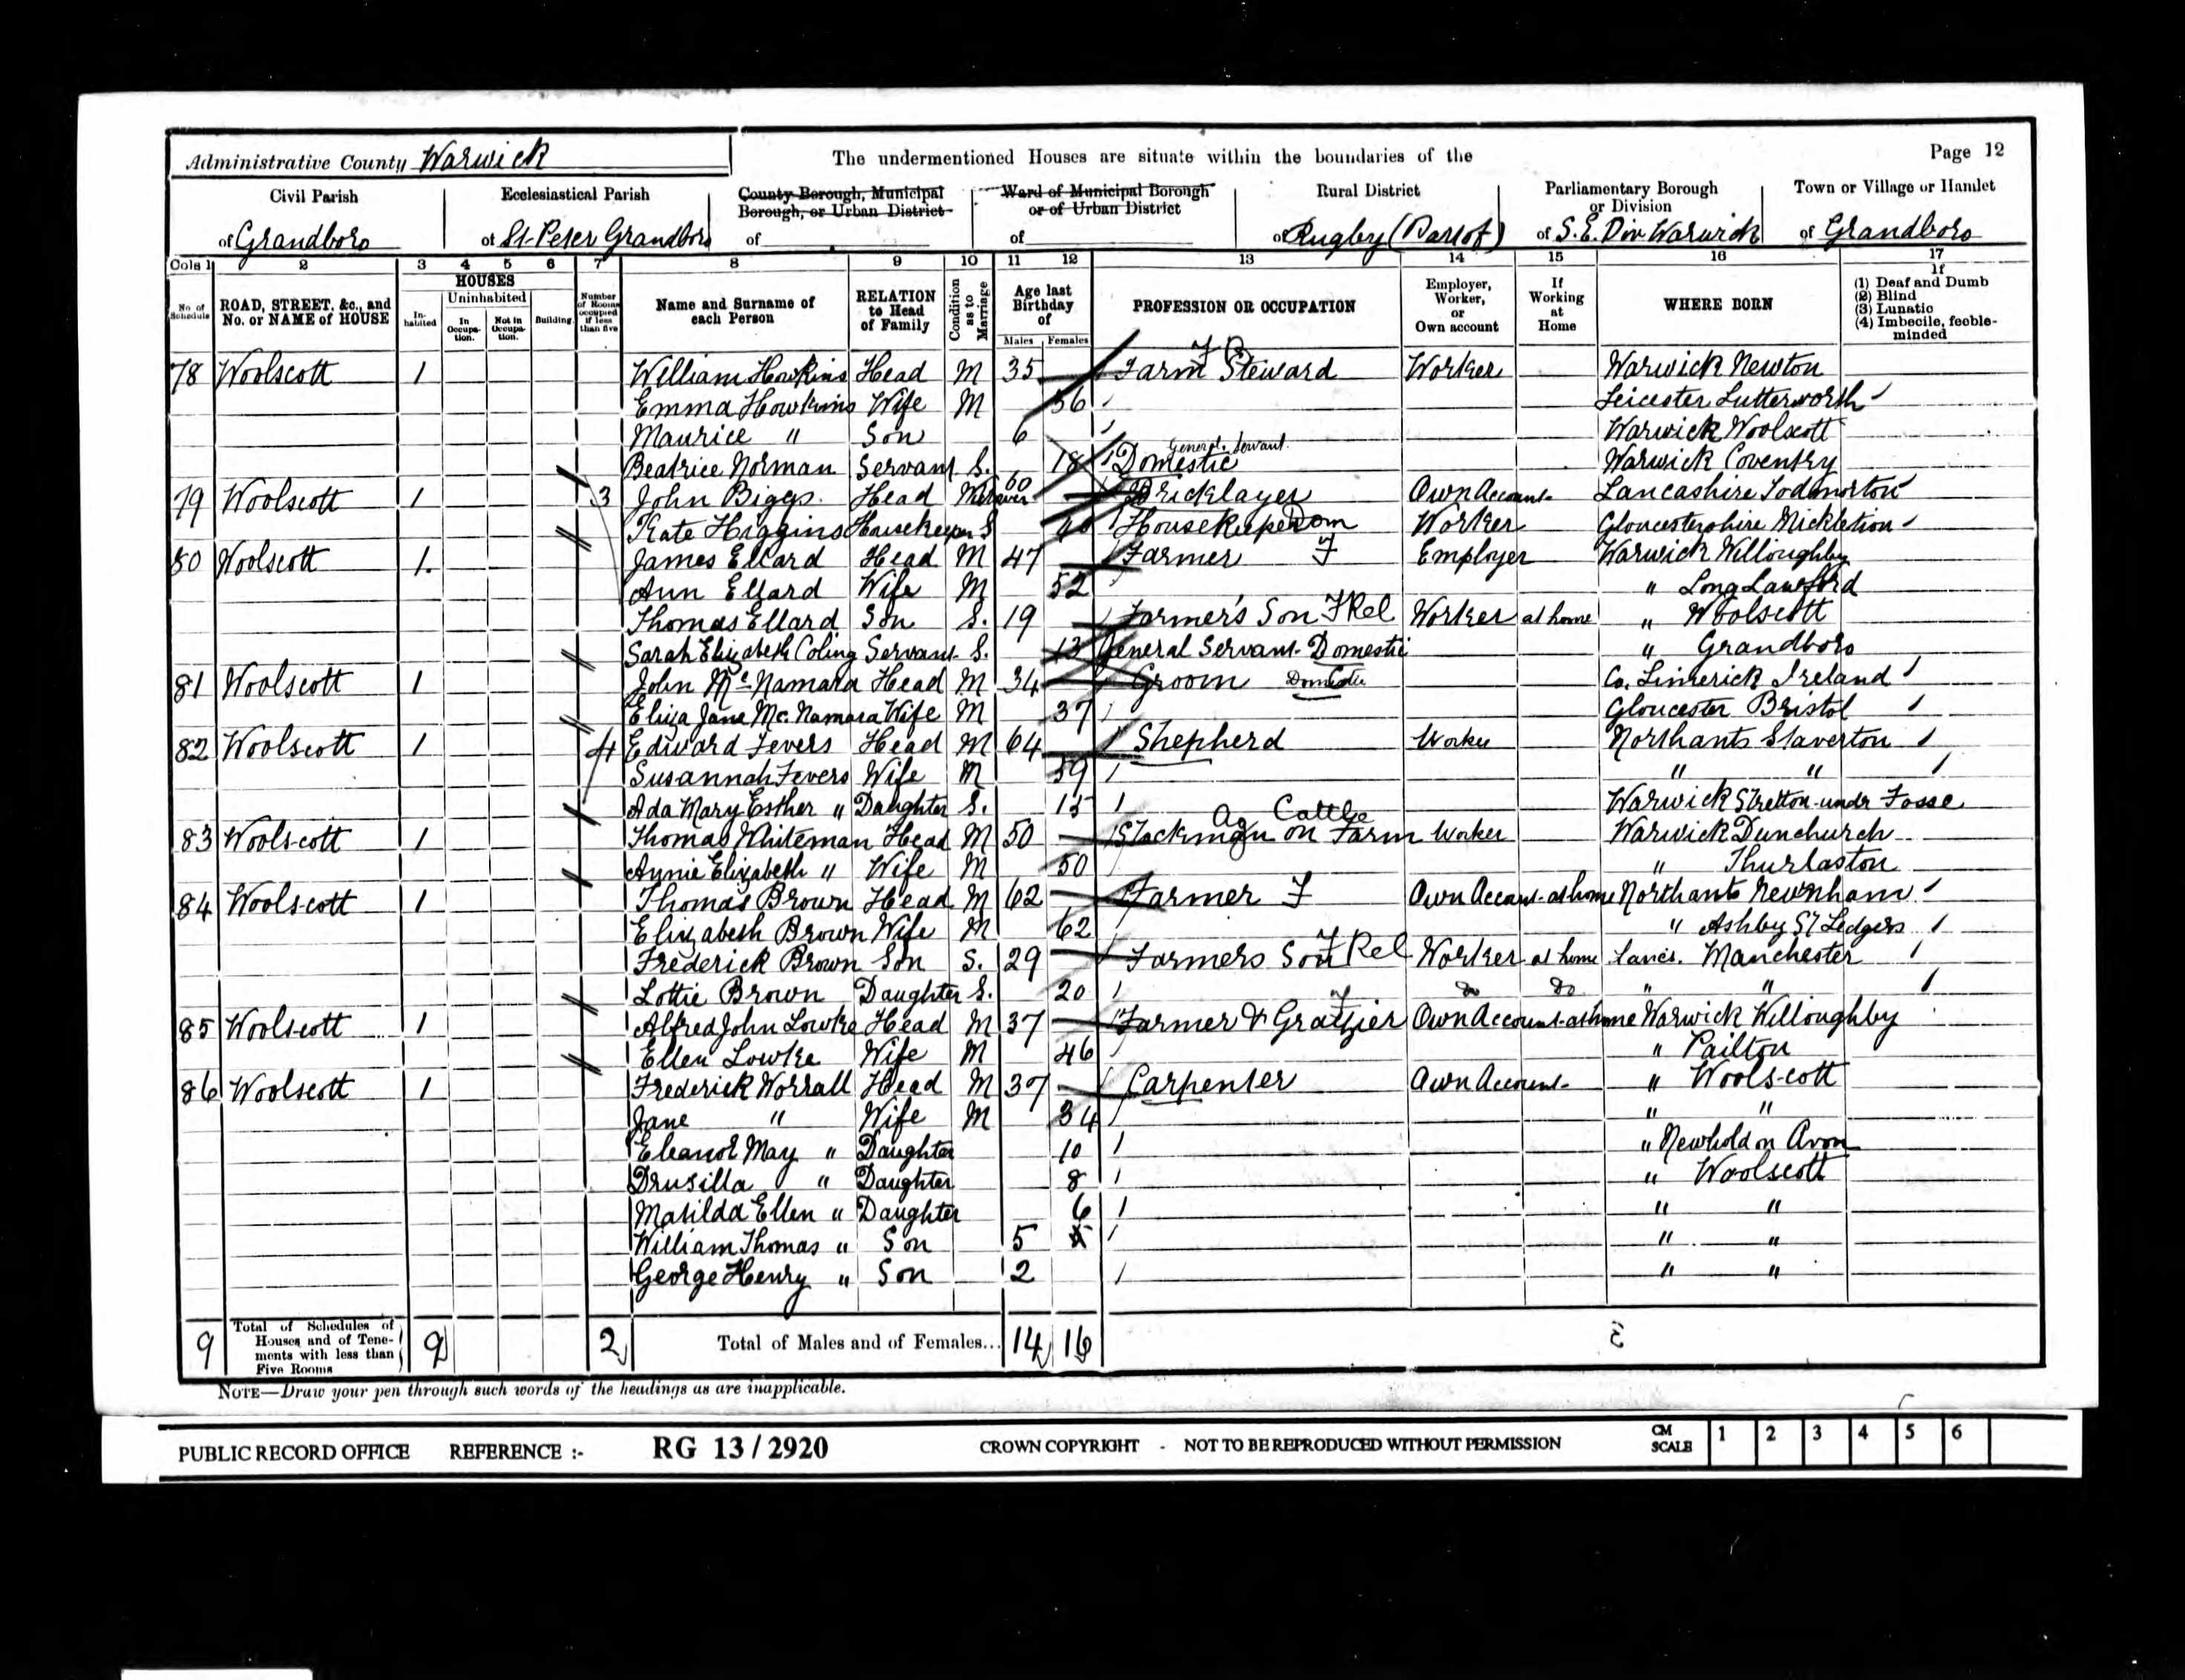 Administrative County Warwick
The undermentioned Houses are situate within the boundaries of the
Page 12
Civil Parish
of Grandboro
Ecclesiastical Parish
of St. Peter Grandboro
County Borough, Municipal Borough, or Urban District
of
Ward of Municipal Borough or of Urban District
of
Rural District
of Rugby (Part of)
Parliamentary Borough or Division
of S.E. Div Warwick
Town or Village or Hamlet
of Grandboro
Cols 1 2 3 4 5 6 7 8 9 10 11 12 13 14 15 16 17
No. of Schedule
ROAD, STREET, &c., and No. or NAME of HOUSE
HOUSES
Inhabited
Uninhabited
In Occupation.
Not in Occupation.
Building
Number of Rooms occupied if less than five
Name and Surname of each Person
RELATION to Head of Family
Condition as to Marriage
Age last Birthday of
Males Females
PROFESSION OR OCCUPATION
Employer, Worker, or Own account
If Working at Home
WHERE BORN
If
(1) Deaf and Dumb
(2) Blind
(3) Lunatic
(4) Imbecile, feeble-minded
78 Woolscott 1 William Howkins Head M 35 Farm Steward Worker Warwick Newton
Emma Howkins Wife M 36 Leicester Lutterworth
Maurice " Son 6 Warwick Woolscott
Beatrice Norman Servant S. 18 Domestic General Servant Warwick Coventry
79 Woolscott 1 3 John Biggs Head Widower 60 Bricklayer Own Account Lancashire Todmorton
Kate Higgins Housekeeper S 40 Housekeeper Dom Worker Gloucestershire Mickletion
80 Woolscott 1 James Ellard Head M 47 Farmer F Employer Warwick Willoughby
Ann Ellard Wife M 52 " Long Lawford
Thomas Ellard Son S. 19 Farmer's Son F Rel Worker at home " Woolscott
Sarah Elizabeth Coling Servant S. 13 General Servant Domestic " Grandboro
81 Woolscott 1 John Mc Namara Head M 34 Groom Domestic Co. Limerick Ireland
Eliza Jane Mc. Namara Wife M 37 Gloucester Bristol
82 Woolscott 1 4 Edward Fevers Head M 64 Shepherd Worker Northants Staverton
Susannah Fevers Wife M 59 " "
Ada Mary Esther " Daughter S. 15 Warwick Stretton-under Fosse
83 Woolscott 1 Thomas Whiteman Head M 50 Ag Cattle Stockman on Farm Worker Warwick Dunchurch
Annie Elizabeth " Wife M 50 " Thurlaston
84 Woolscott 1 Thomas Brown Head M 62 Farmer F Own Account at home Northants Newnham
Elizabeth Brown Wife M 62 " Ashby St Ledgers
Frederick Brown Son S. 29 Farmers Son F Rel Worker at home Lancs. Manchester
Lottie Brown Daughter S. 20 do do " "
85 Woolscott 1 Alfred John Lowke Head M 37 Farmer & Grazier Own Account at home Warwick Willoughby
Ellen Lowke Wife M 46 " Pailton
86 Woolscott 1 Frederick Worrall Head M 37 Carpenter Own Account " Woolscott
Jane " Wife M 34 " "
Eleanor May " Daughter 10 " Newbold on Avon
Drusilla " Daughter 8 " Woolscott
Matilda Ellen " Daughter 6 " "
William Thomas " Son 5 " "
George Henry " Son 2 " "
9 Total of Schedules of Houses and of Tenements with less than Five Rooms 9 2 Total of Males and of Females... 14 16
NOTE—Draw your pen through such words of the headings as are inapplicable.
PUBLIC RECORD OFFICE REFERENCE :- RG 13 / 2920 CROWN COPYRIGHT - NOT TO BE REPRODUCED WITHOUT PERMISSION CM SCALE 1 2 3 4 5 6